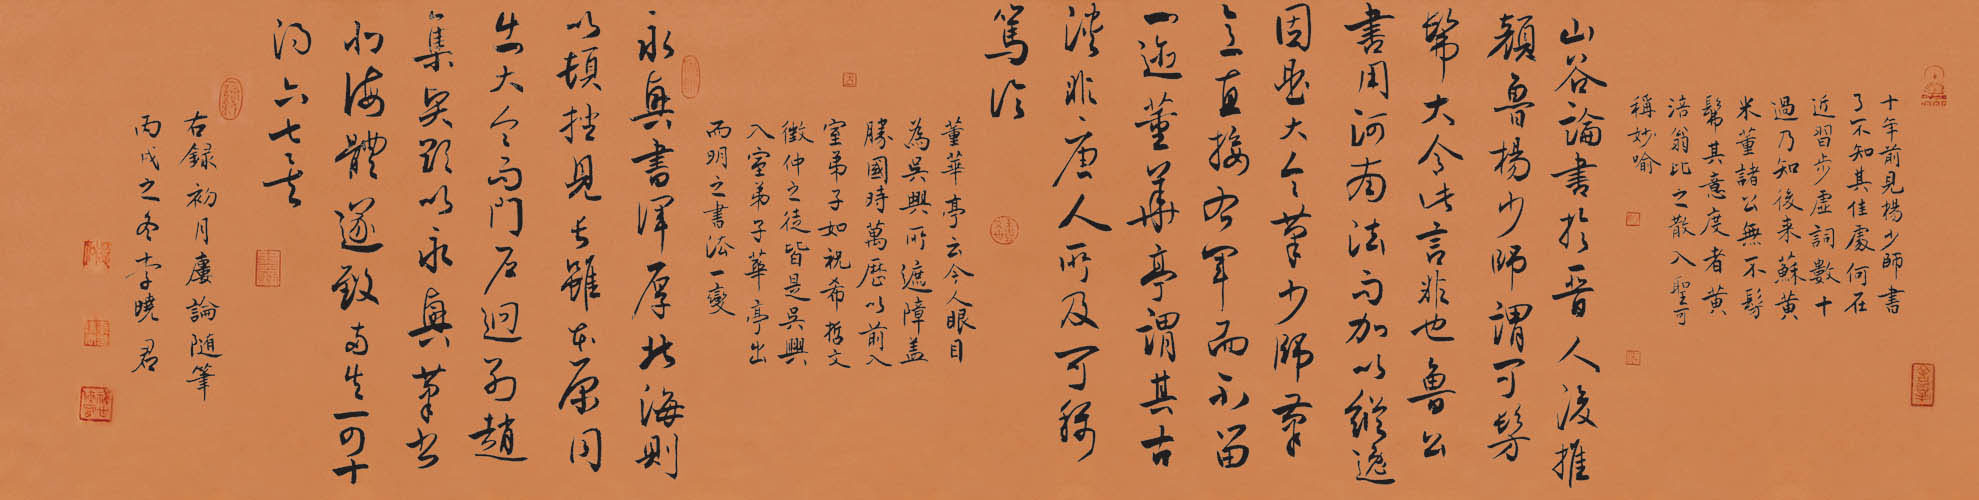 十年前見楊少師書
了不知其佳處何在
近習步虛詞數十
過乃知後来蘇黃
米董諸公無不髣
髴其意度者黃
涪翁比之散入聖可
稱妙喻
山谷論書於晉人後推
顏魯楊少師謂可髣
髴大令此言非也魯公
書用河南法而加以縱逸
因是大令筆少師筆
意直接右軍而不留
一迹董華亭謂其古
淡非唐人所及可稱
篤論
董華亭云今人眼目
為吳興所遮障盖
勝國時萬歷以前入
室弟子如祝希哲文
徵仲之徒皆是吳興
入室弟子華亭出
而明之書法一變
永興書渾厚北海則
以頓挫見長雖本原同
出大令而門户迥别趙
集賢欲以永興筆書
北海體遂致兩失一可十
得六七矣
右録初月廔論随筆
丙戌之冬李曉君